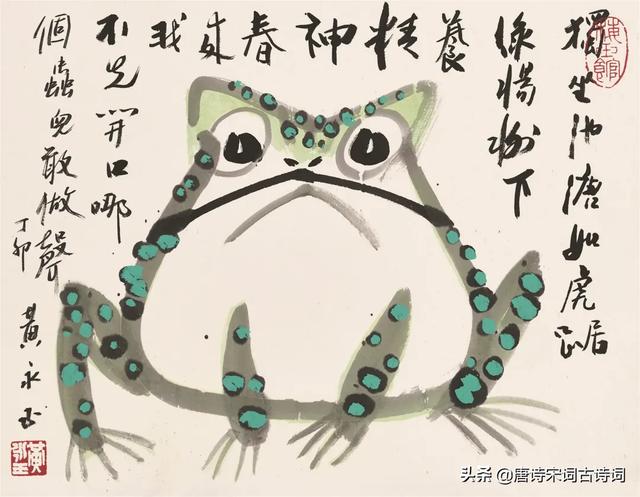 獨坐池塘如虎踞
綠楊樹下
養
精
神
春
來
我
不先開口哪
個蟲兒敢做聲
丁卯
黃永玉
黃永玉
头条 @唐诗宋词古诗词